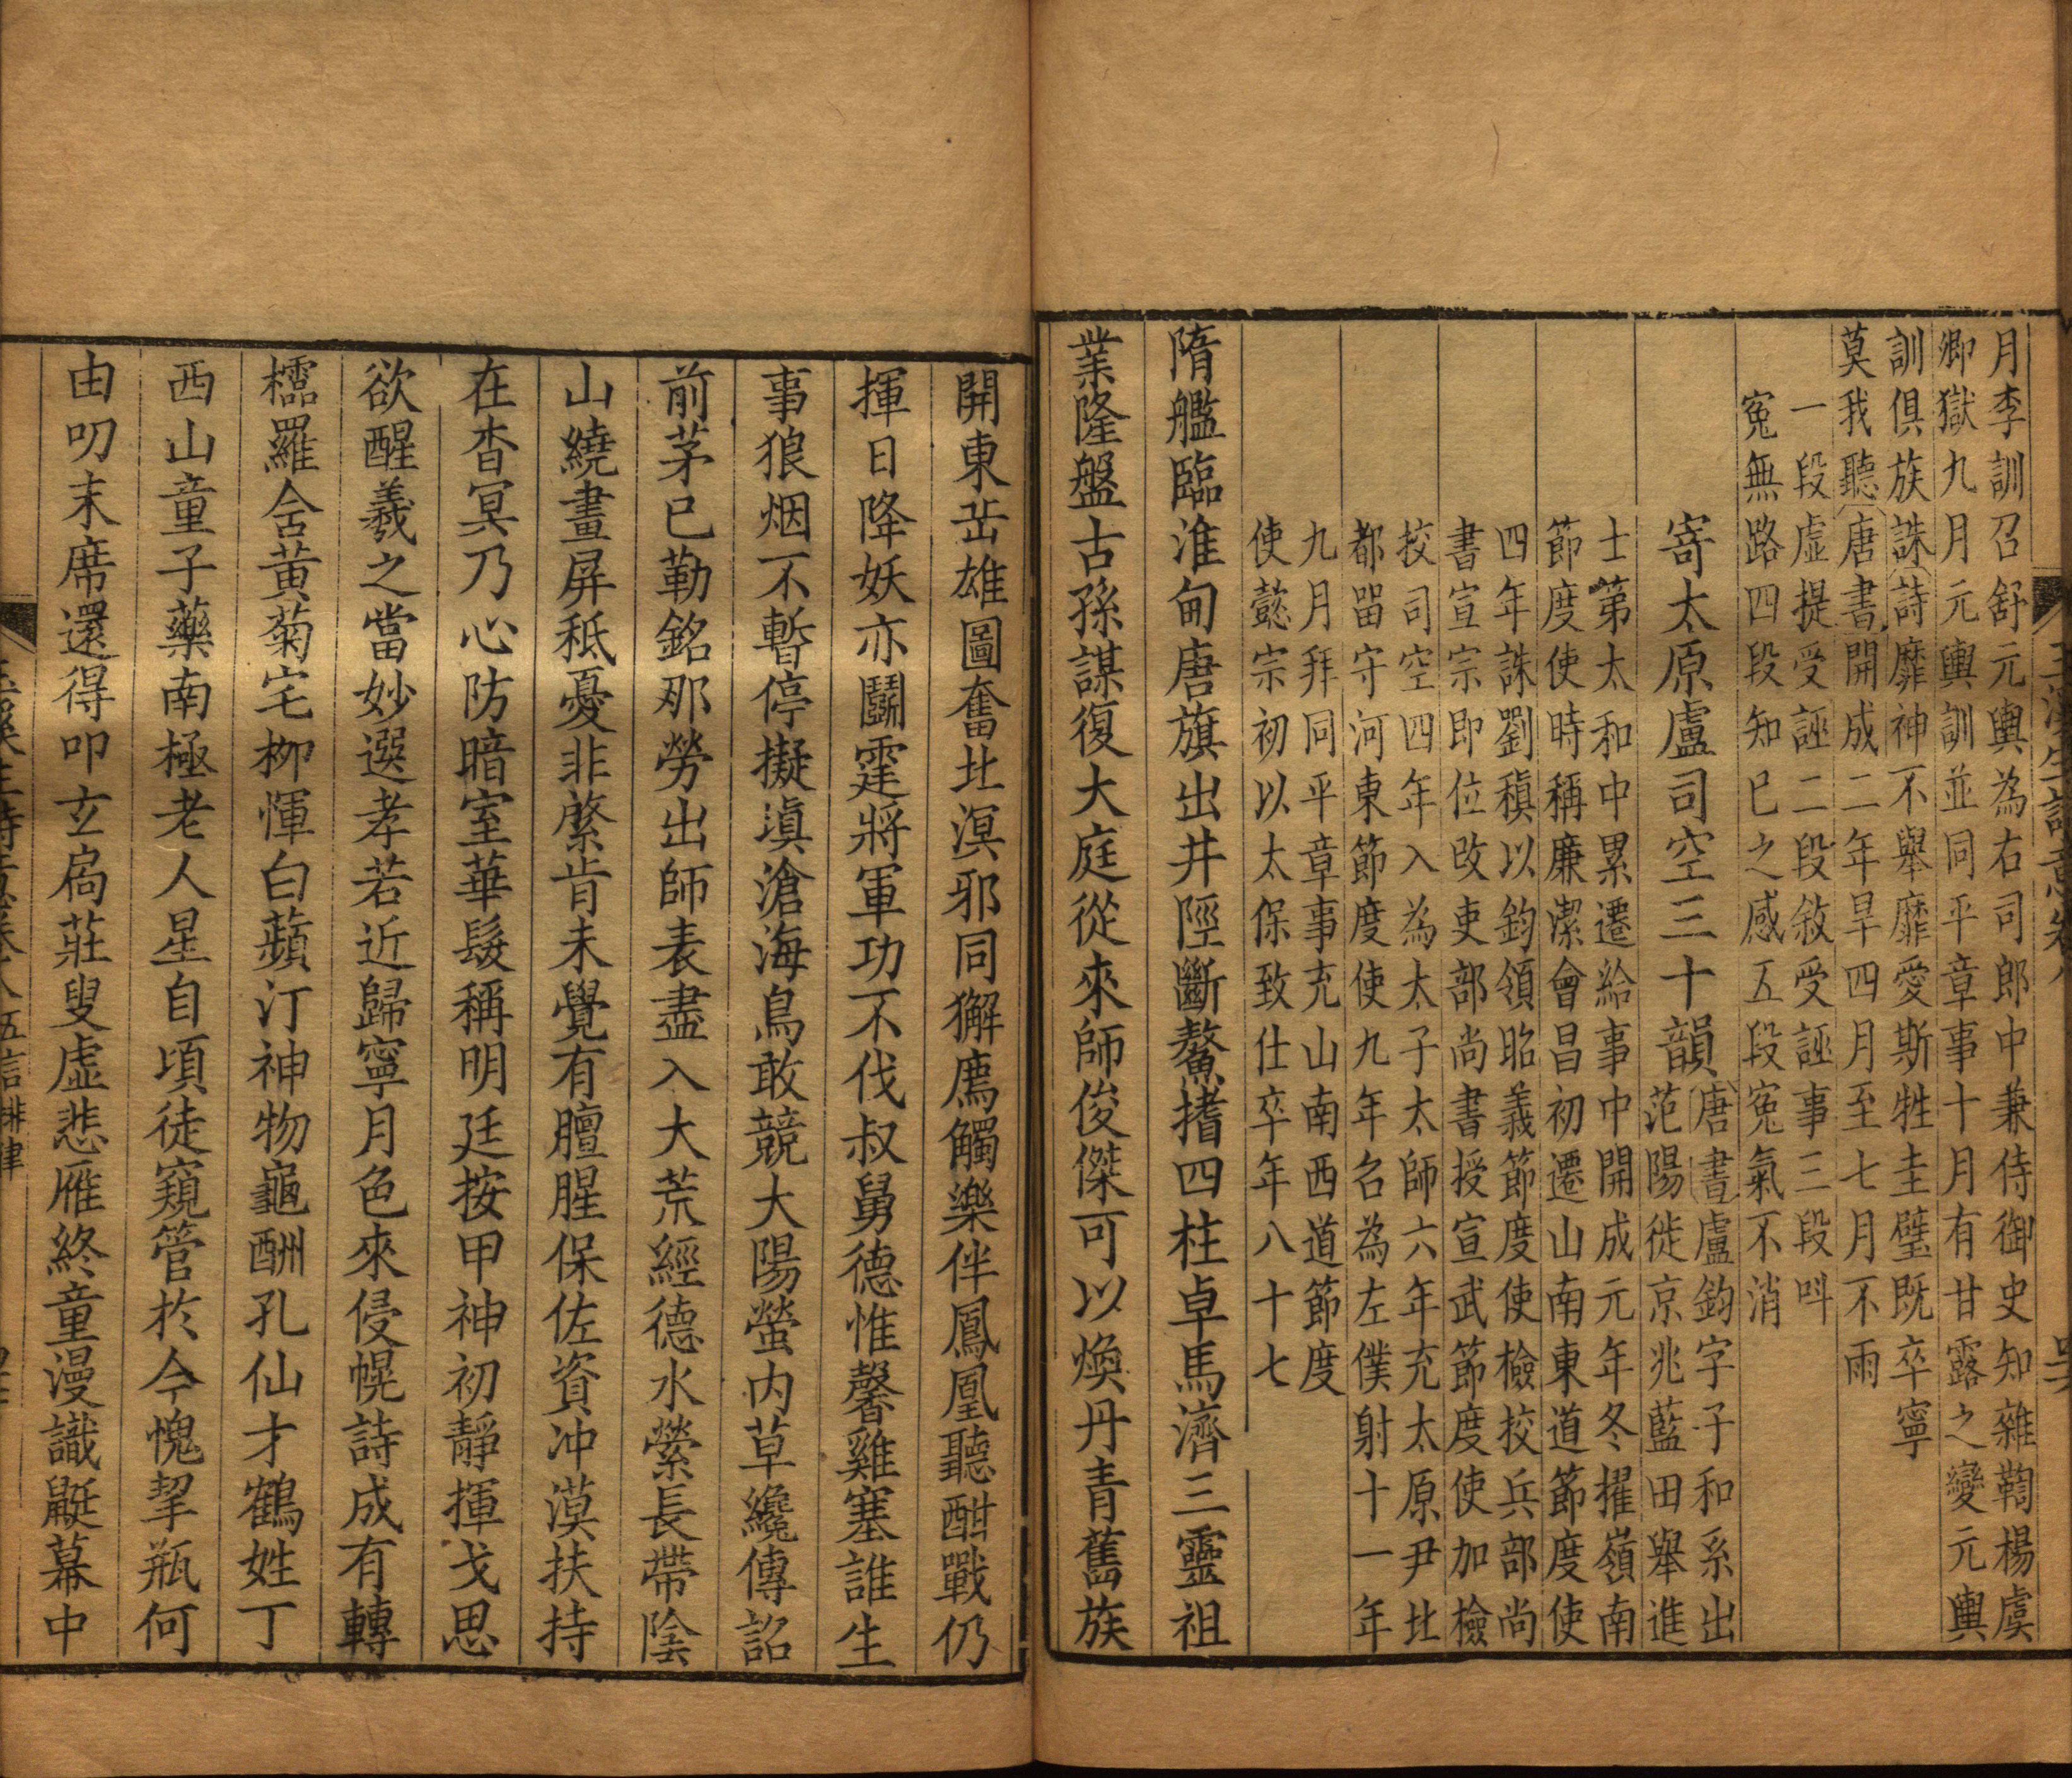 月李訓召舒元輿為右司郎中兼侍御史知雜鞫楊虞
卿獄九月元輿訓並同平章事十月有甘露之變元輿
訓俱族誅詩靡神不舉靡愛斯牲圭璧既卒寧
莫我聽唐書開成二年旱四月至七月不雨
一段虛提受誣二段敘受誣事三段叫
冤無路四段知已之感五段冤氣不消
寄太原盧司空三十韻
唐書盧鈞字子和系出
范陽徙京兆藍田舉進
士第太和中累遷給事中開成元年冬擢嶺南
節度使時稱廉潔會昌初遷山南東道節度使
四年誅劉稹以鈞領昭義節度使檢挍兵部尚
書宣宗即位改吏部尚書授宣武節度使加檢
挍司空四年入為太子太師六年充太原尹北
都留守河東節度使九年名為左僕射十一年
九月拜同平章事充山南西道節度
使懿宗初以太保致仕卒年八十七
隋艦臨淮甸唐旗出井陘斷鰲搘四柱卓馬濟三靈祖
業隆盤古孫謀復大庭從來師俊傑可以煥丹青舊族
開東岳雄圖奮北溟邪同獬廌觸樂伴鳳凰聽酣戰仍
揮日降妖亦鬭霆將軍功不伐叔舅德惟馨雞塞誰生
事狼烟不暫停擬填滄海鳥敢競大陽螢内草纔傳詔
前茅已勒銘那勞出師表盡入大荒經德水縈長帶陰
山繞畫屏秪憂非綮肯未覺有膻腥保佐資冲漠扶持
在杳冥乃心防暗室華髮稱明廷按甲神初靜揮戈思
欲醒羲之當妙選孝若近歸寧月色來侵幌詩成有轉
櫺羅含黄菊宅柳惲白蘋汀神物龜酬孔仙才鶴姓丁
西山童子藥南極老人星自頃徒窺管於今愧挈瓶何
由叨末席還得叩玄扃莊叟虛悲雁終童漫識鼮幕中